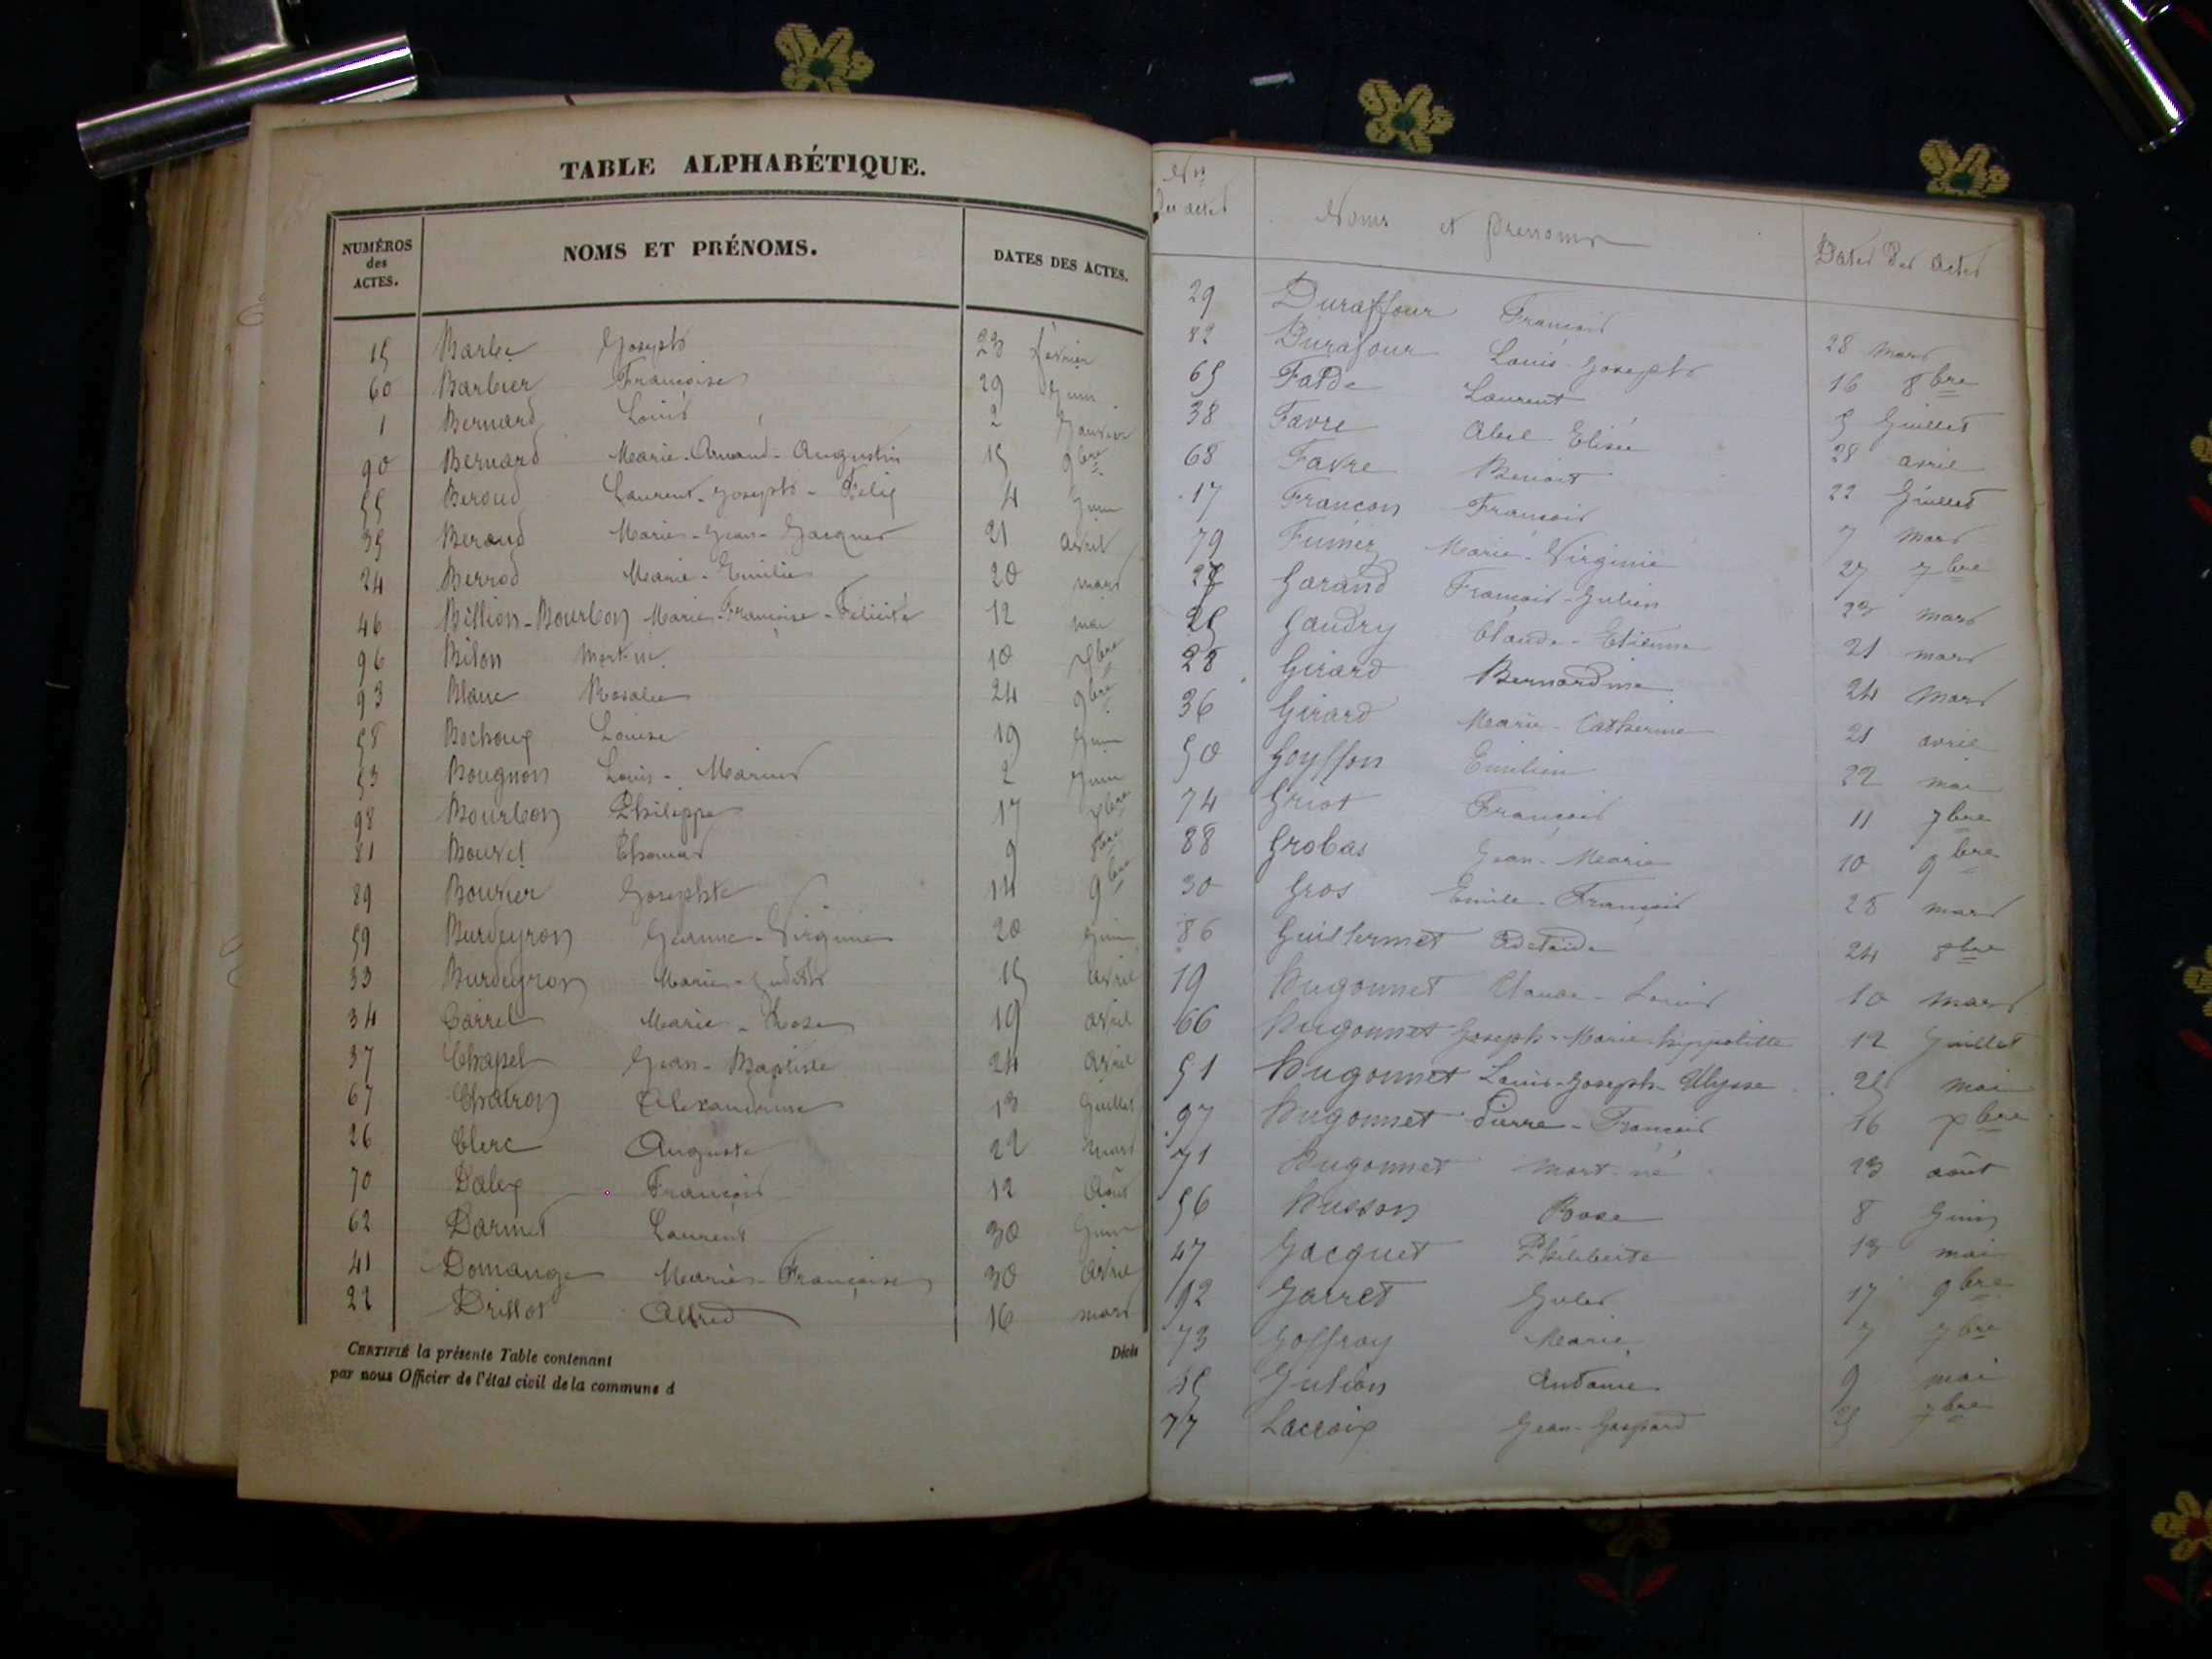 TABLE ALPHABÉTIQUE.
NUMÉROS des ACTES.
NOMS ET PRÉNOMS.
DATES DES ACTES.
15 Barbe Joseph 23 février
60 Barbier Françoise 29 Juin
1 Bernard Louis 2 Janvier
90 Bernard Marie-Armand-Augustin 15 9bre
55 Beroud Laurent-Joseph-Félix 4 Juin
35 Beraud Marie-Jean-Jacques 21 avril
24 Berrod Marie-Emilie 20 mars
46 Billion-Bourbon Marie-Françoise-Félicité 12 mai
96 Bilon Mort-né 10 xbre
93 Blanc Rosalie 24 9bre
58 Bochoux Louise 19 Juin
53 Bougnon Louis-Marius 2 Juin
98 Bourbon Philippe 17 xbre
81 Bouvet Thomas 9 8bre
89 Bouvier Josephte 14 9bre
59 Burdeyron Jeanne-Virginie 20 Juin
33 Burdeyron Marie-Judith 15 avril
34 Carrel Marie-Rose 19 avril
37 Chapel Jean-Baptiste 24 avril
67 Chatron Alexandrine 13 Juillet
26 Clerc Auguste 22 mars
70 Dalex François 12 Août
62 Darmet Laurent 30 Juin
41 Domange Marie-Françoise 30 avril
22 Drillot Alfred 16 mars
CERTIFIÉ la présente Table contenant Décès
par nous Officier de l'état civil de la commune d
Nos des actes
Noms et prénoms
Dates des actes
29 Duraffour François 28 mars
82 Durafour Louis-Joseph 16 8bre
65 Falde Laurent 5 Juillet
38 Favre Abel-Elisée 28 avril
68 Favre Benoit 22 Juillet
17 Françon François 7 mars
79 Fumex Marie-Virginie 27 7bre
27 Garand François-Julien 23 mars
25 Gaudry Claude-Etienne 21 mars
28 Girard Bernardine 24 mars
36 Girard Marie-Catherine 21 avril
50 Goyffon Emilien 22 mai
74 Griot François 11 7bre
88 Grobas Jean-Marie 10 9bre
30 Gros Emile-François 28 mars
86 Guillermet Adelaïde 24 8bre
19 Hugonnet Claude-Louis 10 mars
66 Hugonnet Joseph-Marie-hippolitte 12 Juillet
51 Hugonnet Louis-Joseph-Ulysse 25 mai
97 Hugonnet Pierre-François 16 xbre
71 Hugonnet mort-né 23 août
56 Husson Rose 8 Juin
47 Jacquet Philiberte 13 mai
92 Jarret Jules 17 9bre
73 Joffray Marie 7 7bre
45 Julion Antoine 9 mai
77 Lacroix Jean-Gaspard 25 7bre